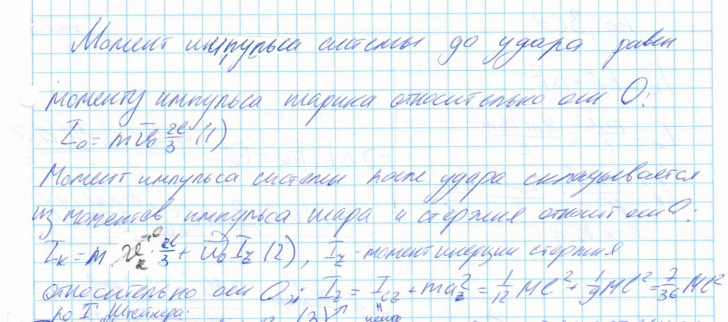 Момент импульса системы до удара равен
моменту импульса шарика относительно оси O:
L₀ = mv₀ 2l/3 (1)
Момент импульса системы после удара складывается
из моментов импульса шара и стержня относит оси O:
L_к = m · 2l/3 + I_z (2), I_z - момент инерции стержня
относительно оси O, I_z = I_cz + ma² = 1/12 Ml² + 1/9 Ml² = 7/36 Ml²
по Т. Штейнера: